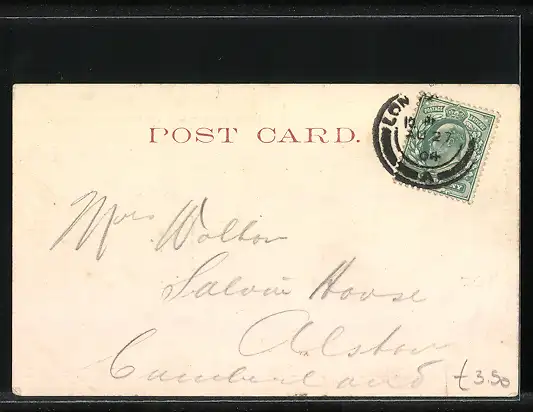 POST CARD.
LON
27
04
Mrs Walton
Salvin House
Alston
Cumberland
£3.50